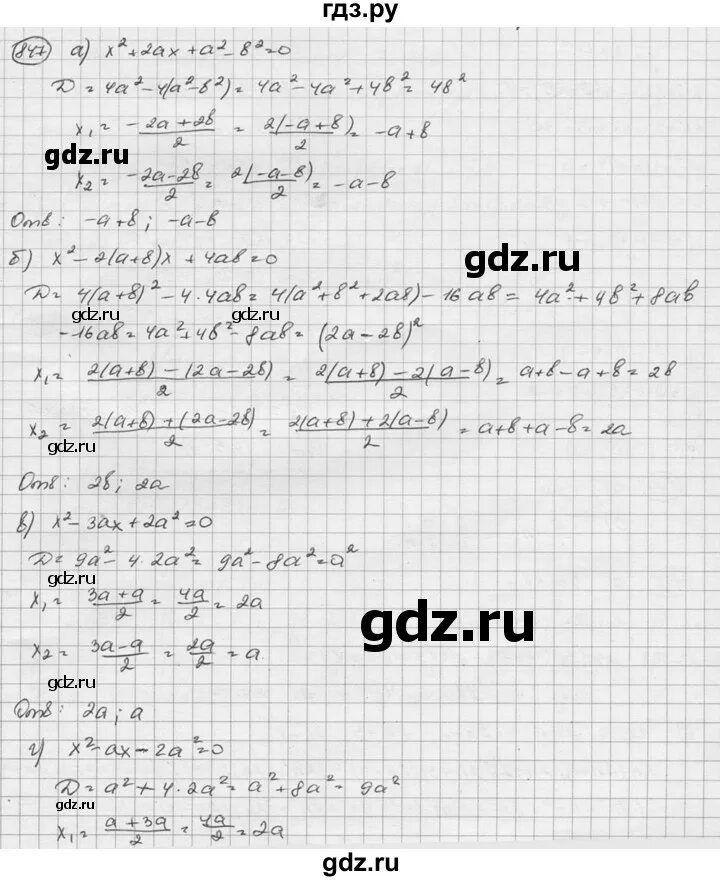 гдз.ру
847 а) x² + 2ax + a² - b² = 0
D = 4a² - 4(a² - b²) = 4a² - 4a² + 4b² = 4b²
x₁ = (-2a + 2b)/2 = 2(-a + b)/2 = -a + b
gdz.ru
x₂ = (-2a - 2b)/2 = 2(-a - b)/2 = -a - b
Отв: -a + b; -a - b
б) x² - 2(a + b)x + 4ab = 0
gdz.ru
D = 4(a + b)² - 4·4ab = 4(a² + b² + 2ab) - 16ab = 4a² + 4b² + 8ab
- 16ab = 4a² + 4b² - 8ab = (2a - 2b)²
x₁ = (2(a + b) - (2a - 2b))/2 = (2(a + b) - 2(a - b))/2 = a + b - a + b = 2b
x₂ = (2(a + b) + (2a - 2b))/2 = (2(a + b) + 2(a - b))/2 = a + b + a - b = 2a
gdz.ru
Отв: 2b; 2a
в) x² - 3ax + 2a² = 0
D = 9a² - 4·2a² = 9a² - 8a² = a²
gdz.ru
x₁ = (3a + a)/2 = 4a/2 = 2a
gdz.ru
x₂ = (3a - a)/2 = 2a/2 = a
gdz.ru
Отв: 2a; a
г) x² - ax - 2a² = 0
D = a² + 4·2a² = a² + 8a² = 9a²
gdz.ru
x₁ = (a + 3a)/2 = 4a/2 = 2a
gdz.ru